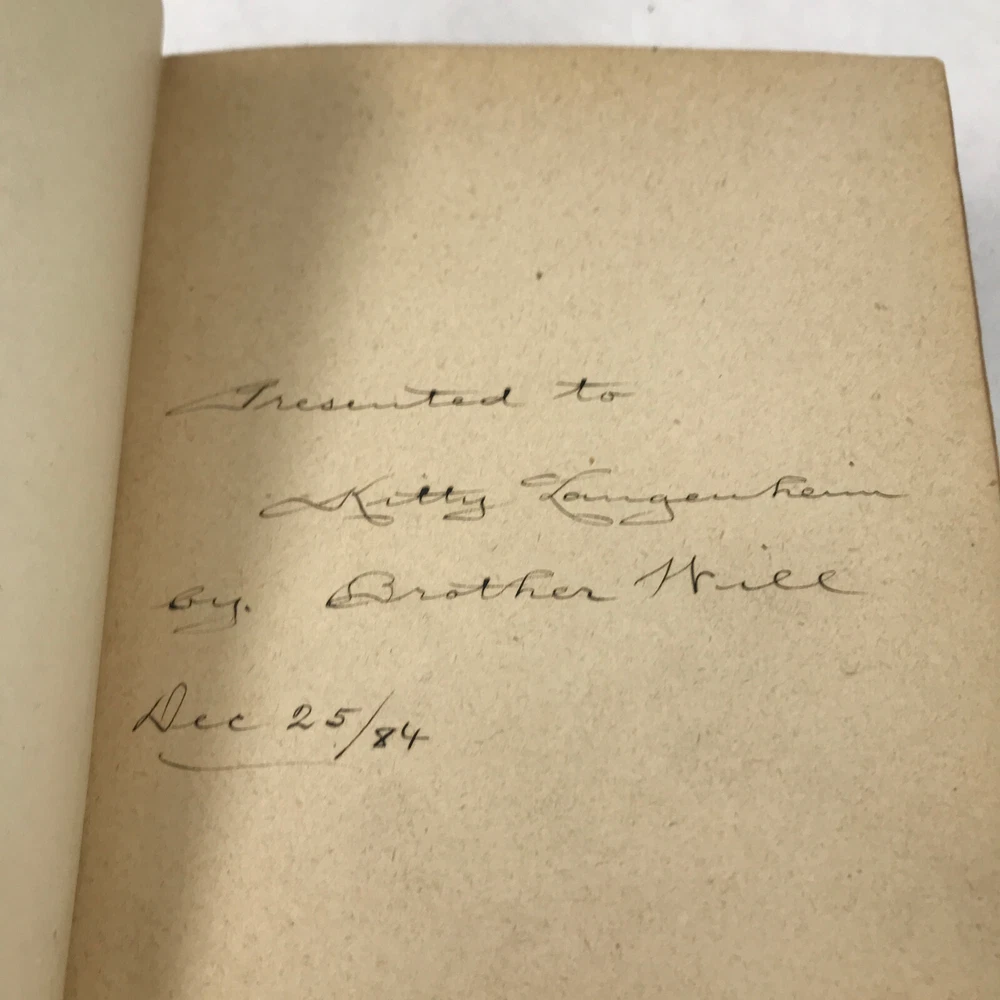 Presented to
Kitty Langenheim
by. Brother Will
Dec 25/84